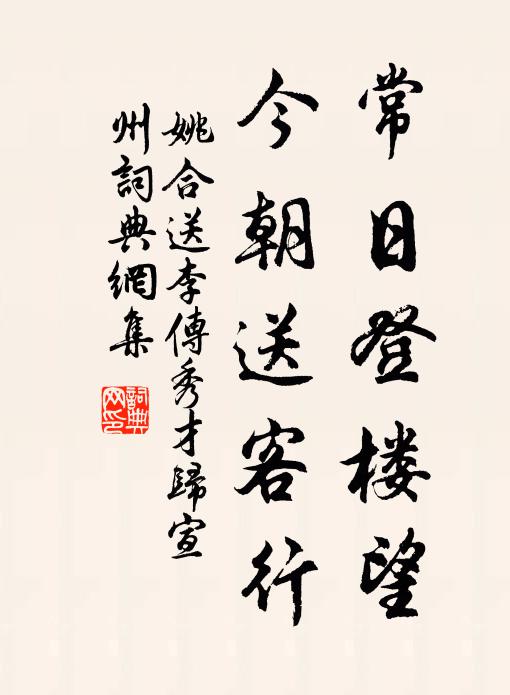 常日登楼望
今朝送客行
姚合送李傅秀才歸宣
州詞典網集
詞典
网印